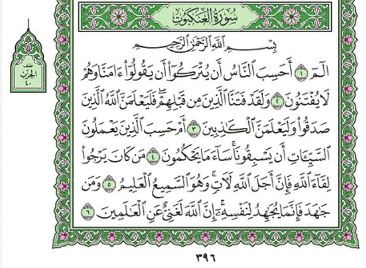 سُورَةُ العَنكَبُوتِ
بِسْمِ اللَّهِ الرَّحْمَٰنِ الرَّحِيمِ
الٓمٓ ١ أَحَسِبَ النَّاسُ أَن يُتْرَكُوٓا۟ أَن يَقُولُوٓا۟ ءَامَنَّا وَهُمْ
لَا يُفْتَنُونَ ٢ وَلَقَدْ فَتَنَّا الَّذِينَ مِن قَبْلِهِمْ ۖ فَلَيَعْلَمَنَّ اللَّهُ الَّذِينَ
صَدَقُوا۟ وَلَيَعْلَمَنَّ الْكَٰذِبِينَ ٣ أَمْ حَسِبَ الَّذِينَ يَعْمَلُونَ
السَّيِّـَٔاتِ أَن يَسْبِقُونَا ۚ سَآءَ مَا يَحْكُمُونَ ٤ مَن كَانَ يَرْجُوا۟
لِقَآءَ اللَّهِ فَإِنَّ أَجَلَ اللَّهِ لَءَاتٍ ۚ وَهُوَ السَّمِيعُ الْعَلِيمُ ٥ وَمَن
جَٰهَدَ فَإِنَّمَا يُجَٰهِدُ لِنَفْسِهِۦٓ ۚ إِنَّ اللَّهَ لَغَنِىٌّ عَنِ الْعَٰلَمِينَ ٦
٣٩٦